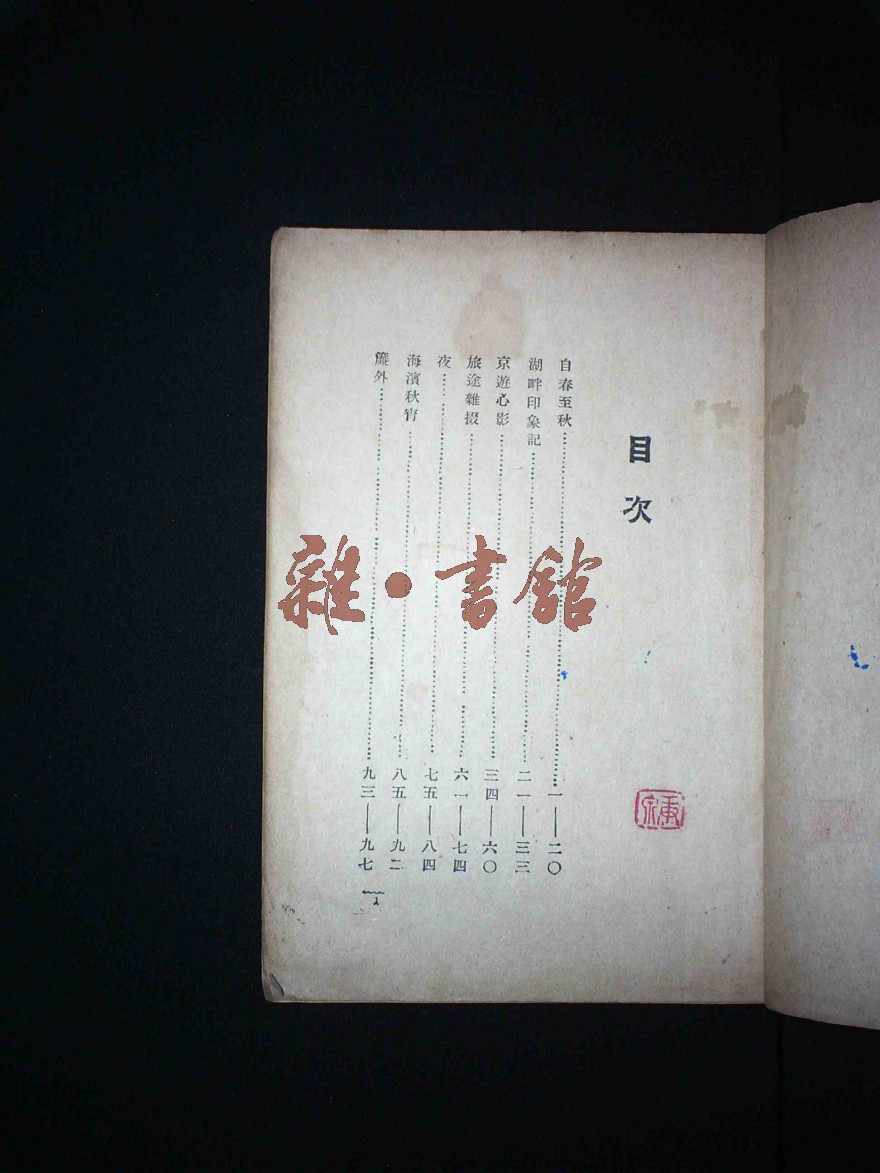 目次
自春至秋…………一——二〇
湖畔印象記…………二一——三三
京遊心影…………三四——六〇
旅途雜掇…………六一——七四
夜…………七五——八四
海濱秋宵…………八五——九二
簾外…………九三——九七
1
雜·書館